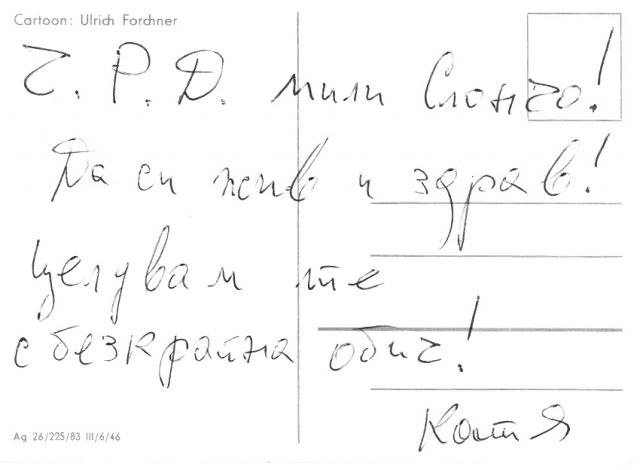 Cartoon: Ulrich Forchner
Ч. Р. Д. мили Слончо!
Да си жив и здрав!
Целувам те
с безкрайна обич!
Катя
Ag 26/225/83 III/6/46